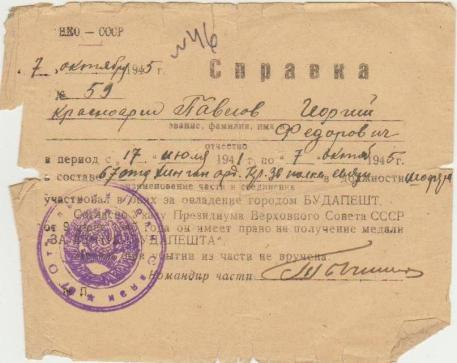 НКО — СССР
№46
7 октября 1945 г.
Справка
№ 59
Красноарм. Павлов Георгий
звание, фамилия, имя
Федорович
отчество
в период с 17 июля 1941 по 7 октября 1945 г.
в составе полка связи в должности шофера
наименование части и соединения
участвовал в боях за овладение городом БУДАПЕШТ.
Согласно Указу Президиума Верховного Совета СССР
от 9 года он имеет право на получение медали
"ЗА ВЗЯТИЕ БУДАПЕШТА".
из части не вручена.
Командир части